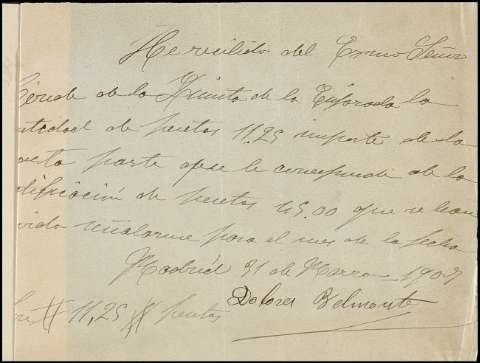 He recibido del Excmo Señor
Conde de la Quinta de la Enjarada la
cantidad de pesetas 11,25 importe de la
cuarta parte que le corresponde de la
de pesetas 45.00 que se han
señalarme para el mes de la fecha
Madrid 31 de Marzo 1909
Son # 11,25 # pesetas
Dolores Belmonte